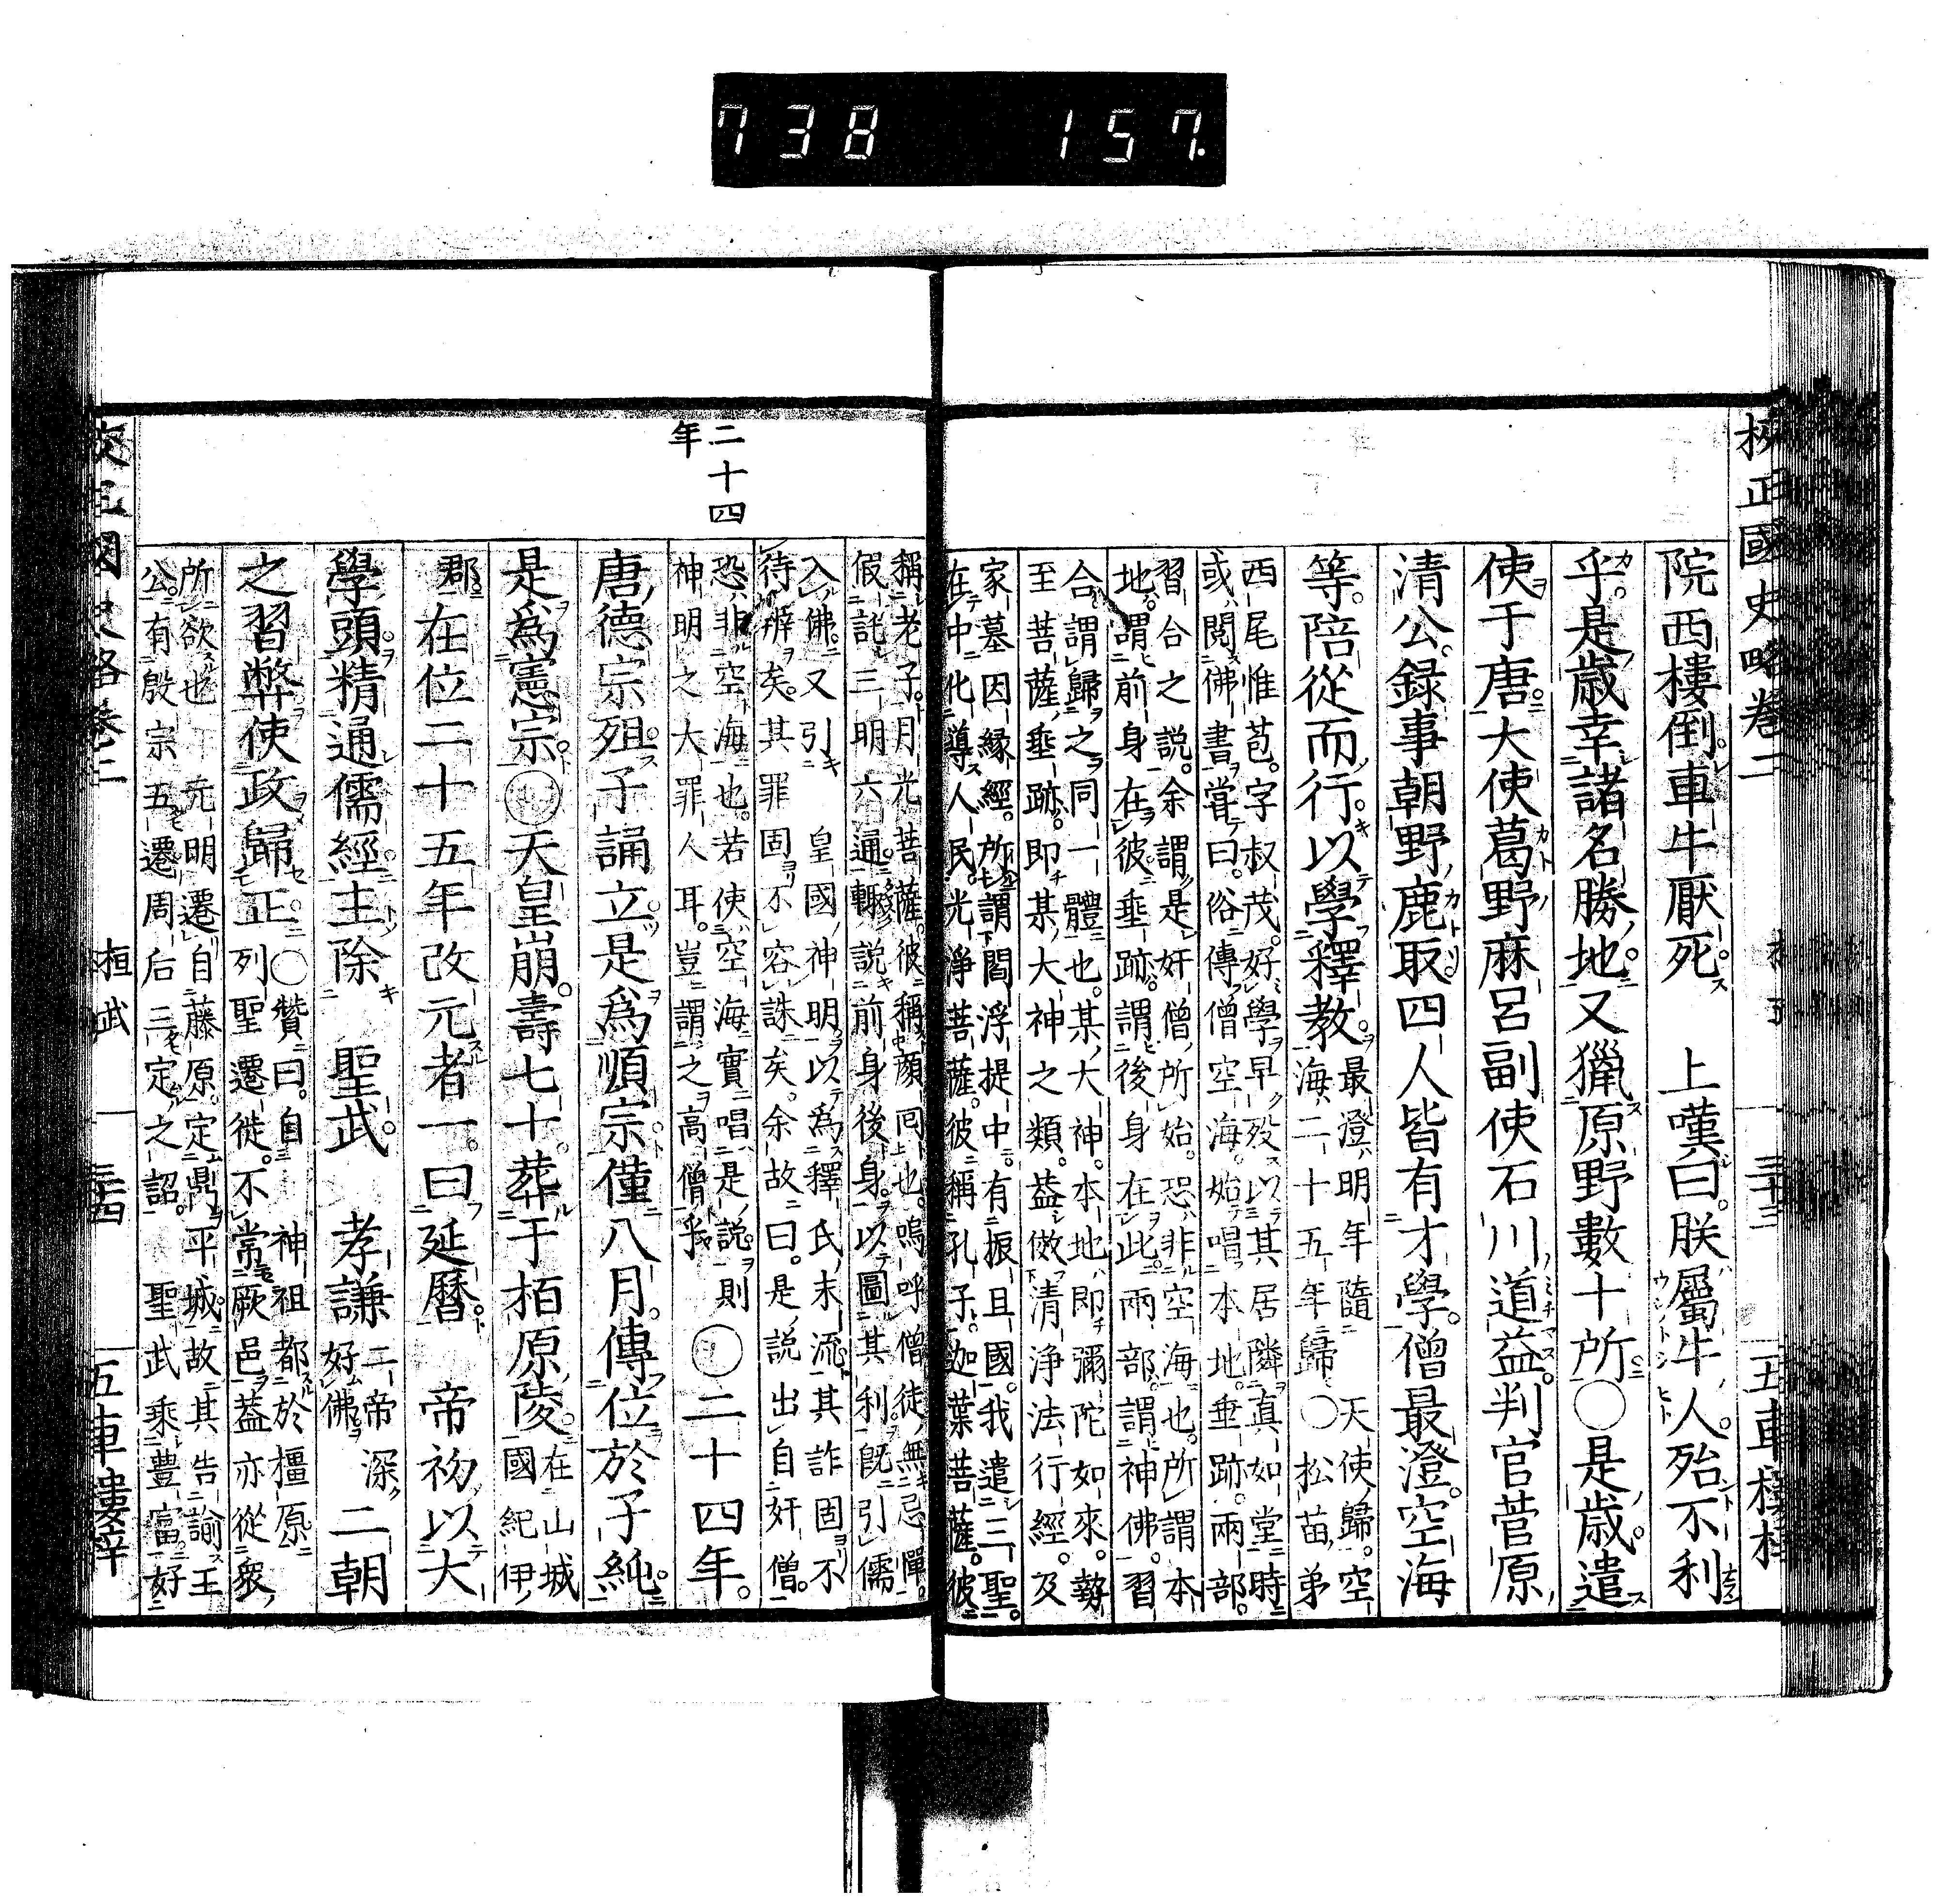 738 157.
校正國史略卷二
三十三
五車樓梓
院西樓倒車牛厭死 上嘆曰朕屬牛人殆不利
乎是歲幸諸名勝地又獵原野數十所○是歲遣
使于唐大使葛野麻呂副使石川道益判官菅原
清公錄事朝野鹿取四人皆有才學僧最澄空海
等陪從而行以學釋教
最澄明年隨 天使歸空
海二十五年歸○松苗弟
西尾惟苞字叔茂好學早歿以其居隣真如堂時
或閱佛書嘗曰俗傳僧空海始唱本地垂跡兩部
習合之說余謂是奸僧所始恐非空海也所謂本
地謂前身在彼垂跡謂後身在此兩部謂神佛習
合謂歸之同一體也某大神本地即彌陀如來勢
至菩薩垂跡即某大神之類蓋倣清淨法行經及
家墓因緣經所謂閻浮提中有振且國我遣三聖
在中化導人民光淨菩薩彼稱孔子迦葉菩薩彼
稱老子月光菩薩彼稱顏回也嗚呼僧徒無忌憚
假託三明六通輙說前身後身以圖其利既引儒
入佛又引 皇國神明以為釋氏末流其詐固不
待辨矣其罪固不容誅矣余故曰是說出自奸僧
恐非空海也若使空海實唱是說則
神明之大罪人耳豈謂之高僧乎
○二十四年
二十四年
唐德宗殂子誦立是為順宗僅八月傳位於子純
是為憲宗○天皇崩壽七十葬于栢原陵
在山城
國紀伊
郡
在位二十五年改元者一曰延曆 帝初以大
學頭精通儒經主除 聖武 孝謙
二帝深
好佛
二朝
之習弊使政歸正
○贊曰自 神祖都於橿原
列聖遷徙不常厥邑蓋亦從衆
所欲也 元明遷自藤原定鼎平城故其告諭王
公有殷宗五遷周后三定之詔 聖武乘豊富好
桓武
三十四
五車樓梓